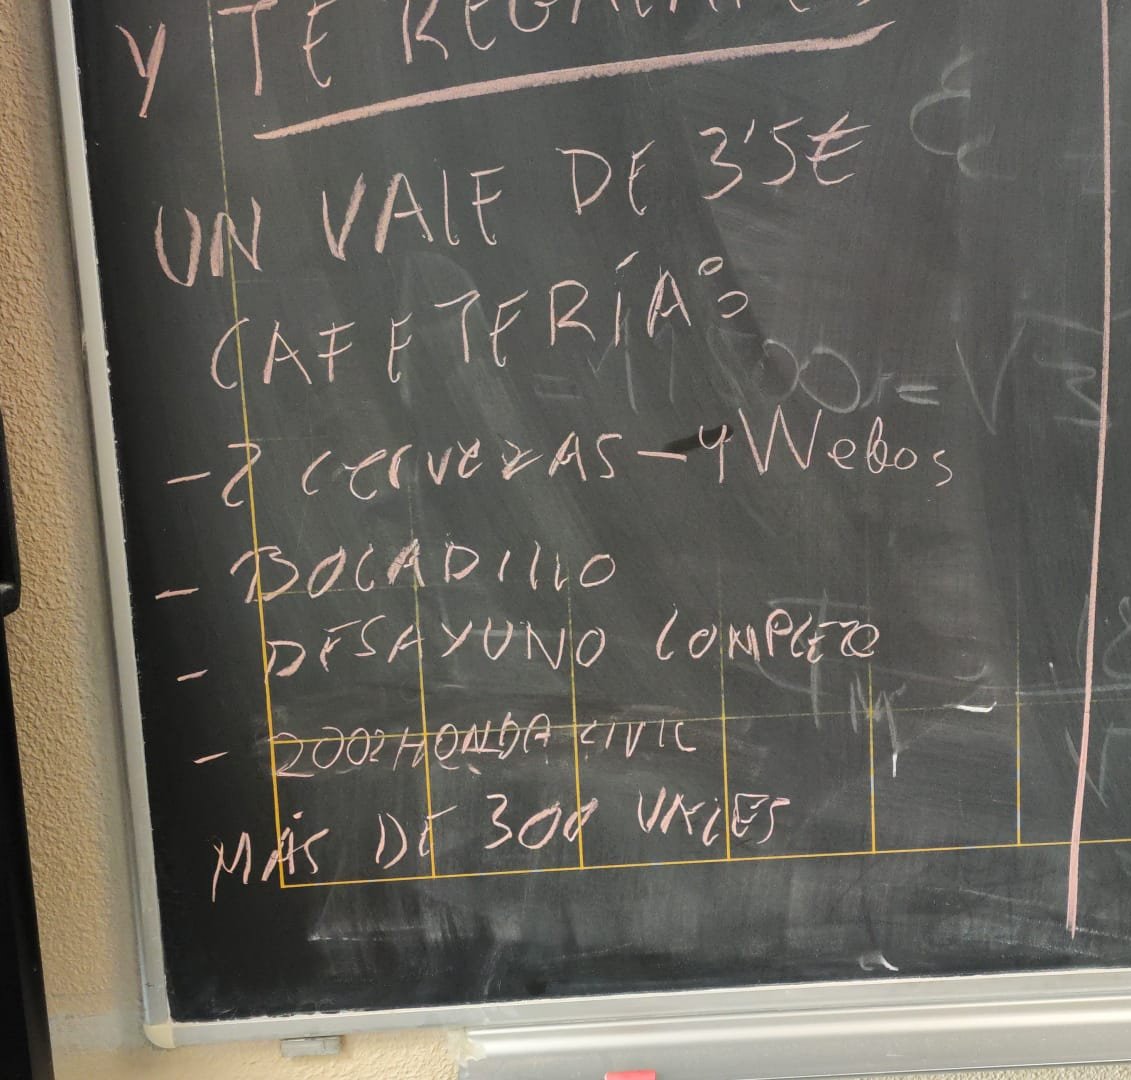 Y TE REGALAMOS
UN VALE DE 3'5€
CAFETERÍA:
- 2 cervezAS - 4 Webos
- BOCADILLO
- DESAYUNO COMPLETO
- 2002 HONDA CIVIC
MÁS DE 300 VALES